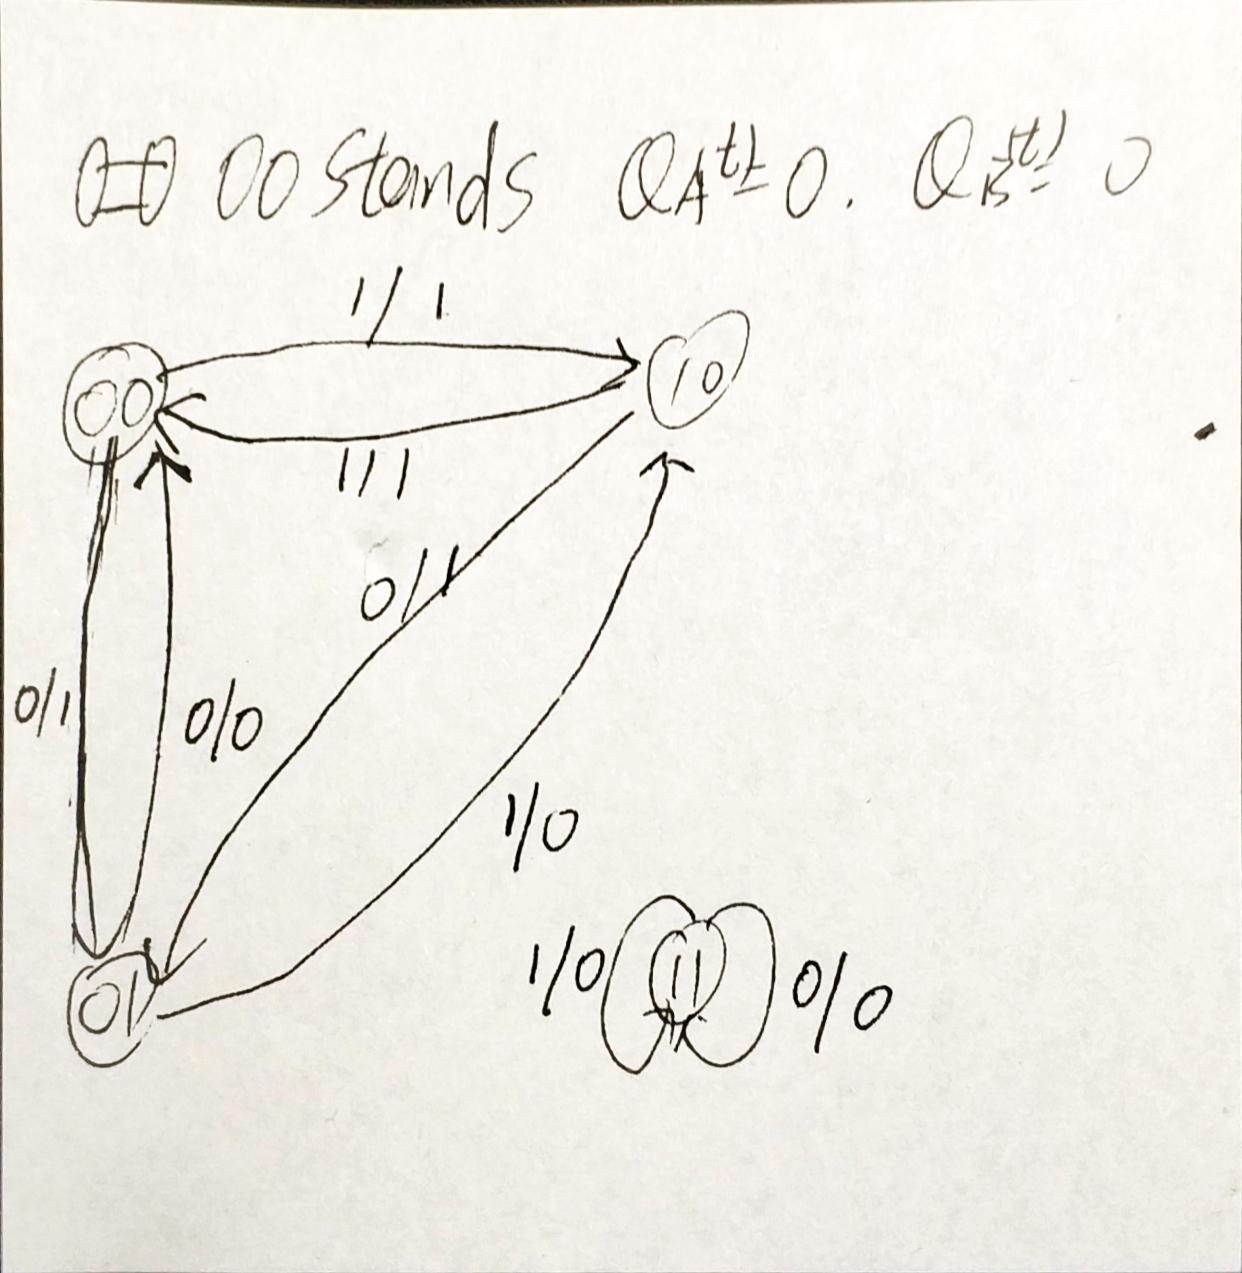 00 stands QA(t)=0. QB(t)=0
1/1
00
10
1/1
0/1
0/1
0/0
1/0
01
1/0
11
0/0